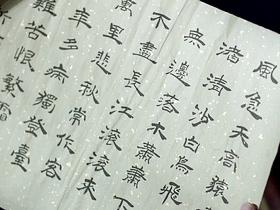 風急天高猿
渚清沙白鳥飛
無邊落木蕭蕭下
不盡長江滾滾來
萬里悲秋常作客
年多病獨登臺
難苦恨繁霜